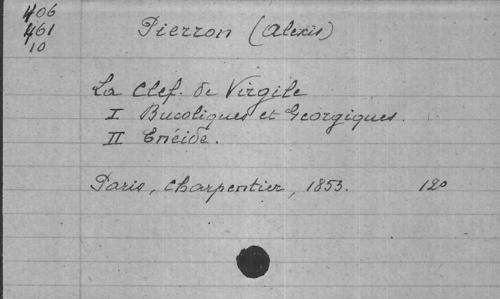 406
461
10
Pierron (Alexis)
La Clef de Virgile
I Bucoliques et Georgiques.
II Enéide.
Paris, Charpentier, 1853. 120